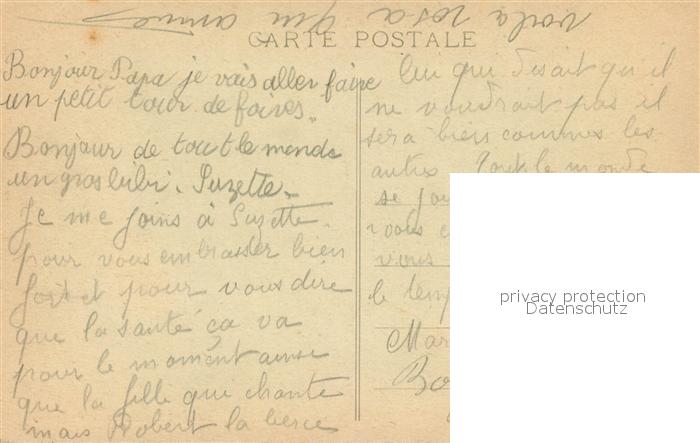 voila rosa qui arrive
CARTE POSTALE
Bonjour Papa je vais aller faire
un petit tour de foires.
Bonjour de tout le monde
un gros bibi. Suzette.
Je me joins à Suzette.
pour vous embrasser bien
fort et pour vous dire
que la santé ça va
pour le moment ainsi
que la fille que chante
mais Robert la berce
lui qui disait qu'il
ne voudrait pas il
sera bien comme les
autres. Tout le monde
se
vous
vous
le
Mar
Bo
privacy protection
Datenschutz